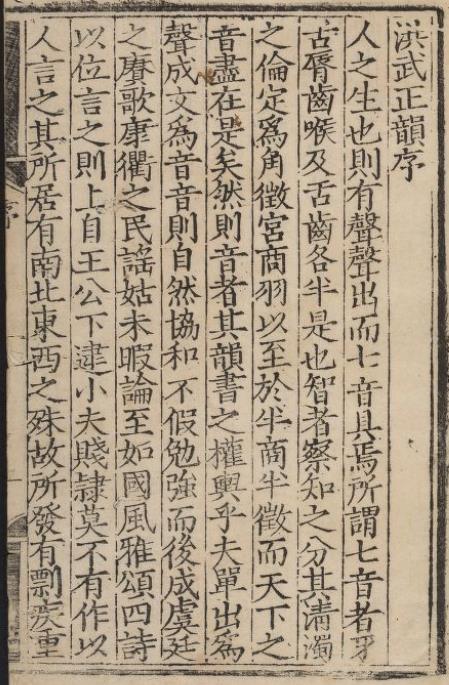 洪武正韻序
人之生也則有聲聲出而七音具焉所謂七音者牙
舌脣齒喉及舌齒各半是也智者察知之分其清濁
之倫定爲角徵宮商羽以至於半商半徵而天下之
音盡在是矣然則音者其韻書之權輿乎夫單出爲
聲成文爲音音則自然協和不假勉強而後成虞廷
之賡歌康衢之民謠姑未暇論至如國風雅頌四詩
以位言之則上自王公下逮小夫賤隷莫不有作以
人言之其所居有南北東西之殊故所發有剽疾重
序